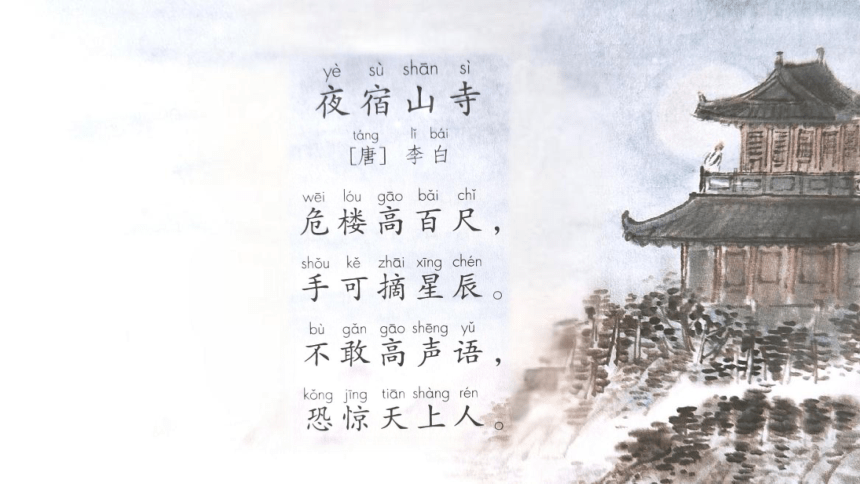 yè sù shān sì
夜宿山寺
táng lǐ bái
［唐］ 李白
wēi lóu gāo bǎi chǐ
危楼高百尺，
shǒu kě zhāi xīng chén
手可摘星辰。
bù gǎn gāo shēng yǔ
不敢高声语，
kǒng jīng tiān shàng rén
恐惊天上人。